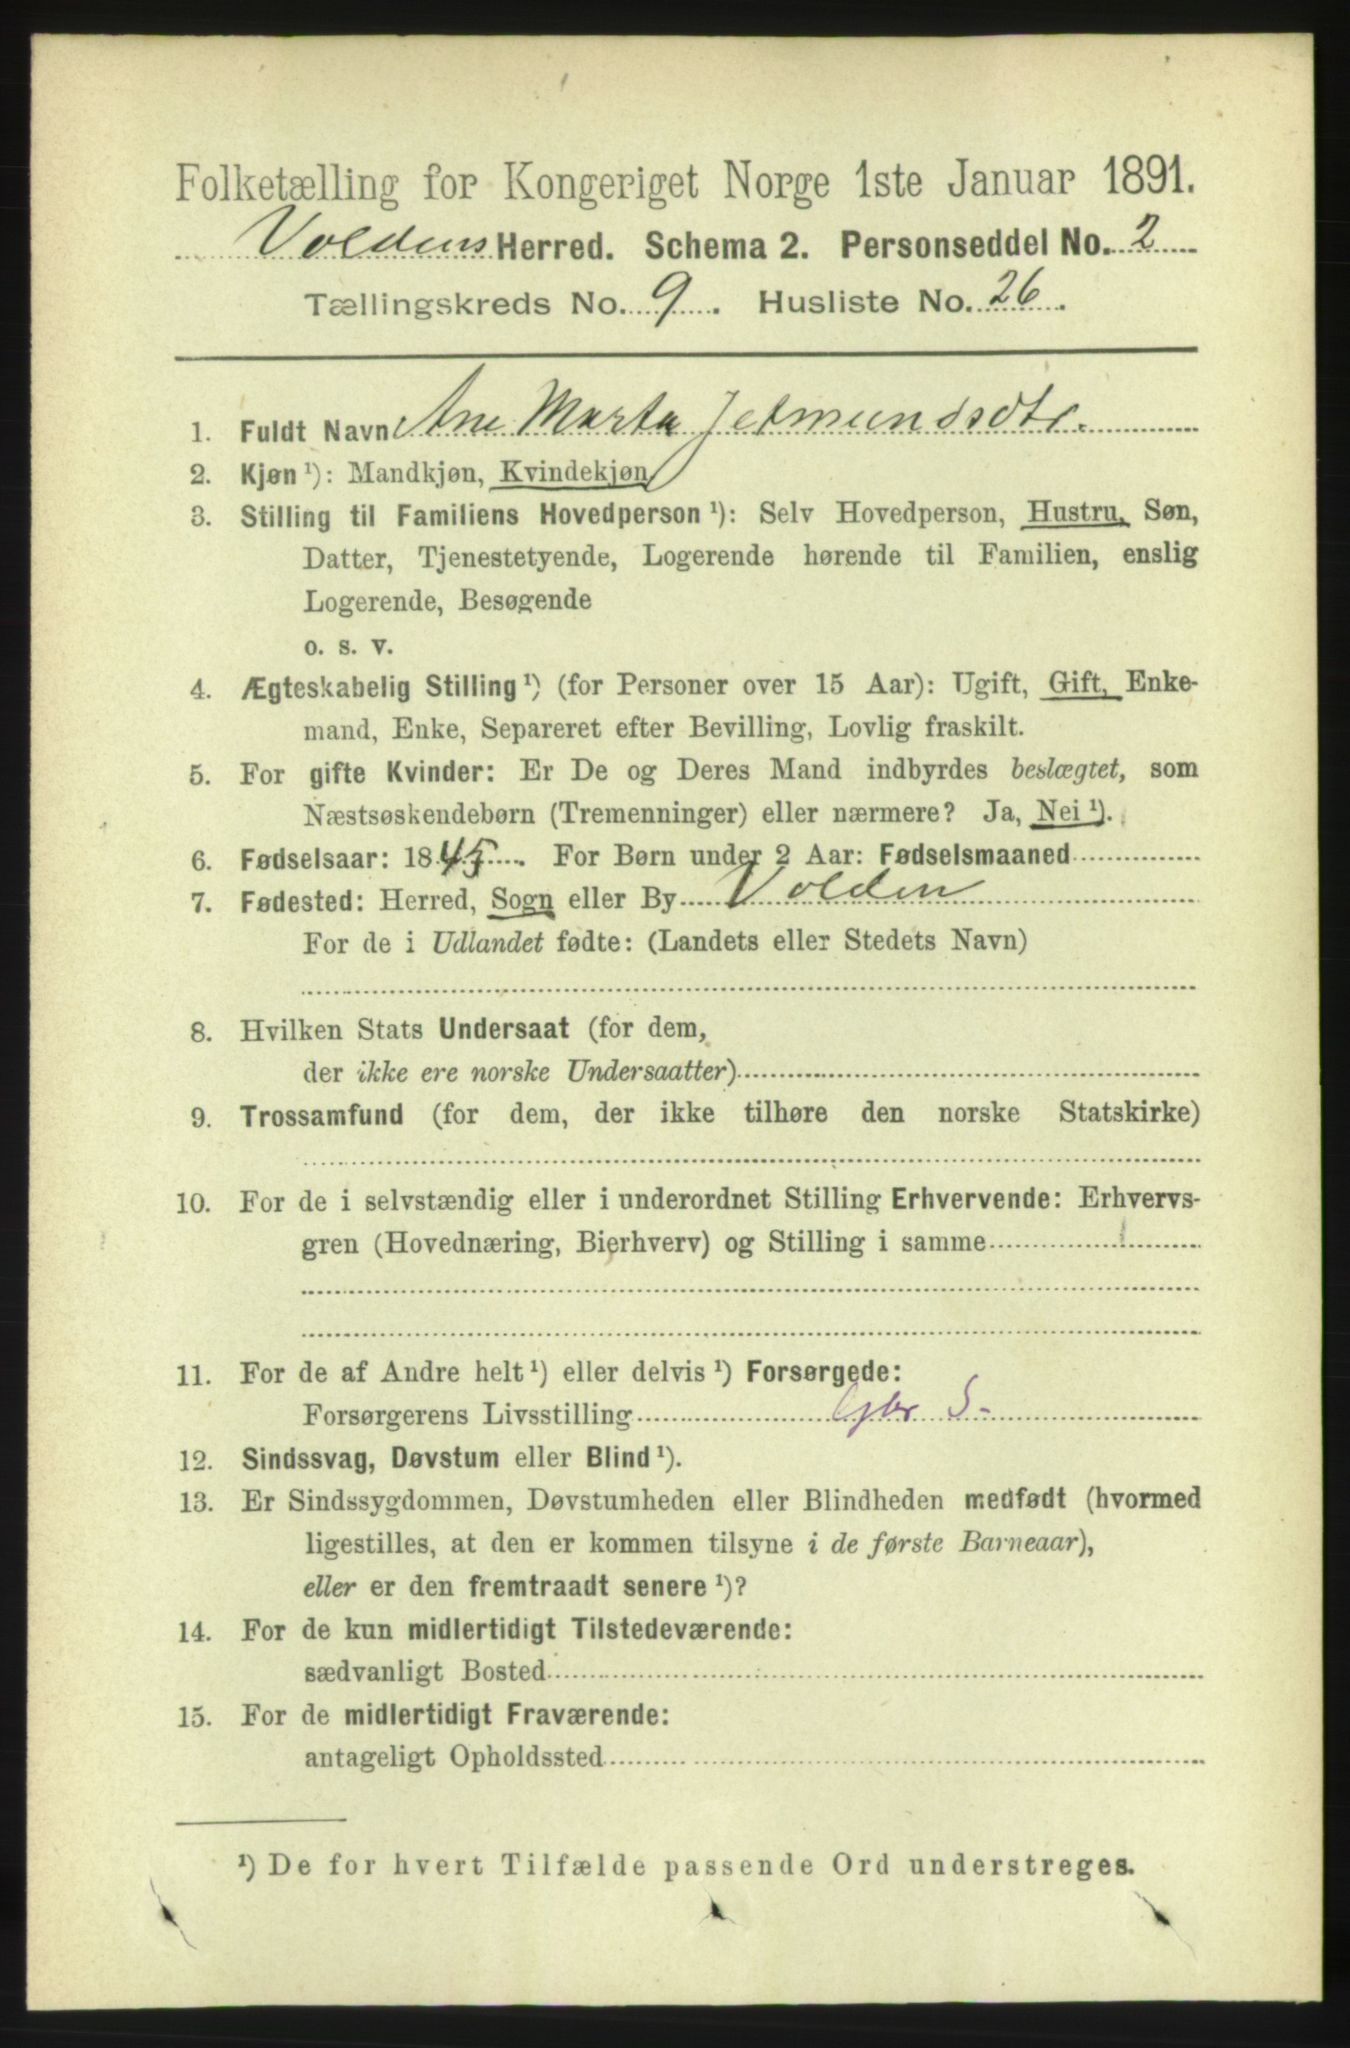 Folketælling for Kongeriget Norge 1ste Januar 1891.
Voldens Herred. Schema 2. Personseddel No. 2
Tællingskreds No. 9. Husliste No. 26.
1. Fuldt Navn Ane Marta Jetmundsdtr.
2. Kjøn ¹): Mandkjøn, Kvindekjøn
3. Stilling til Familiens Hovedperson ¹): Selv Hovedperson, Hustru, Søn,
Datter, Tjenestetyende, Logerende hørende til Familien, enslig
Logerende, Besøgende
o. s. v.
4. Ægteskabelig Stilling ¹) (for Personer over 15 Aar): Ugift, Gift, Enke-
mand, Enke, Separeret efter Bevilling, Lovlig fraskilt.
5. For gifte Kvinder: Er De og Deres Mand indbyrdes beslægtet, som
Næstsøskendebørn (Tremenninger) eller nærmere? Ja, Nei ¹).
6. Fødselsaar: 1845. For Børn under 2 Aar: Fødselsmaaned
7. Fødested: Herred, Sogn eller By Volden
For de i Udlandet fødte: (Landets eller Stedets Navn)
8. Hvilken Stats Undersaat (for dem,
der ikke ere norske Undersaatter)
9. Trossamfund (for dem, der ikke tilhøre den norske Statskirke)
10. For de i selvstændig eller i underordnet Stilling Erhvervende: Erhvervs-
gren (Hovednæring, Bierhverv) og Stilling i samme
11. For de af Andre helt ¹) eller delvis ¹) Forsørgede:
Forsørgerens Livsstilling Gbr S-
12. Sindssvag, Døvstum eller Blind ¹).
13. Er Sindssygdommen, Døvstumheden eller Blindheden medfødt (hvormed
ligestilles, at den er kommen tilsyne i de første Barneaar),
eller er den fremtraadt senere ¹)?
14. For de kun midlertidigt Tilstedeværende:
sædvanligt Bosted
15. For de midlertidigt Fraværende:
antageligt Opholdssted
¹) De for hvert Tilfælde passende Ord understreges.